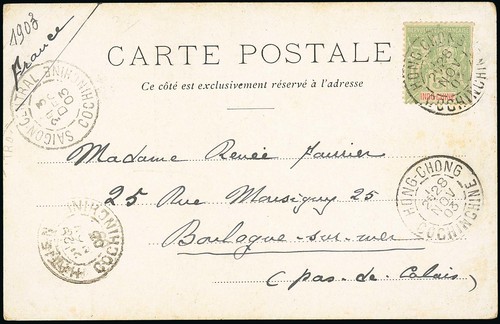 1903
France
CARTE POSTALE
Ce côté est exclusivement réservé à l'adresse
INDO-CHINE
HONG-CHONG
28
NOV
COCHINCHINE
SAIGON-CENTRAL
03
COCHINCHINE
Madame Renée Fournier
25 Rue Marsigny 25
HONG-CHONG
28
NOV
03
COCHINCHINE
Boulogne-sur-mer
(Pas-de-Calais)
COCHINCHINE